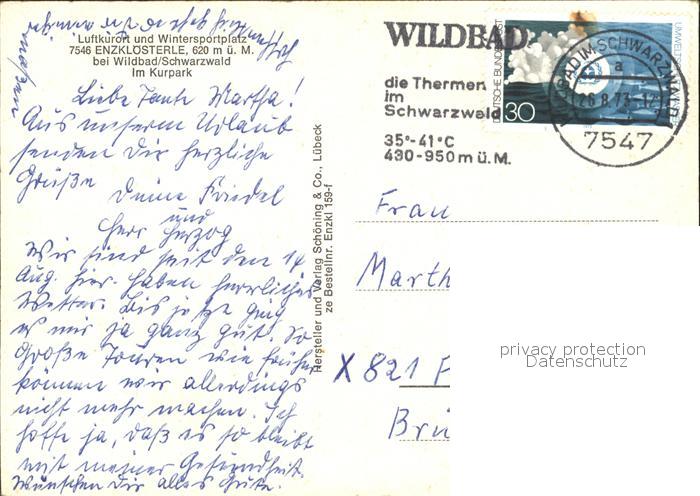 Luftkurort und Wintersportplatz
7546 ENZKLÖSTERLE, 620 m ü. M.
bei Wildbad/Schwarzwald
Im Kurpark
Liebe Tante Martha!
Aus unserem Urlaub
senden Dir herzliche
Grüße
Deine Friedel
und
Herr Herzog
Wir sind seit den 14
Aug. hier. haben herrliches
Wetter. Bis jetzt ging
es mir ja ganz gut. So
große Touren wie früher
können wir allerdings
nicht mehr machen. Ich
hoffe ja, daß es so bleibt
mit meiner Gesundheit.
Wünschen Dir alles Gute.
Hersteller und Verlag Schöning & Co., Lübeck
ze Bestellnr. Enzkl 159-f
WILDBAD
die Thermen
im
Schwarzwald
35°-41°C
430-950 m ü. M.
DEUTSCHE BUNDESPOST
30
BAD IM SCHWARZWALD
a
26.8.73-12
7547
Frau
Marth
X821 F
Brü
privacy protection
Datenschutz